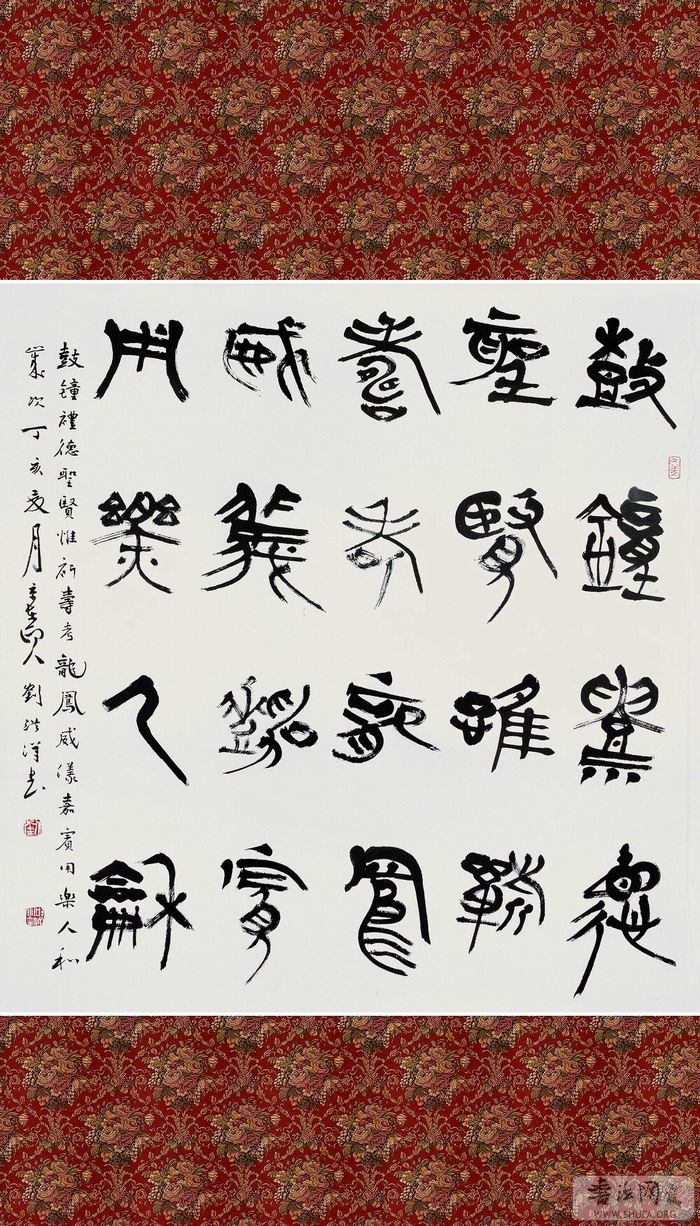 鼓鐘豊德
聖賢惟祈
壽考龍鳳
威義嘉賓
用樂人龢
鼓鐘禮德聖賢惟祈壽考龍鳳威儀嘉賓用樂人和
歲次丁亥夏月劉洪洋書
WWW.SHUFA.ORG